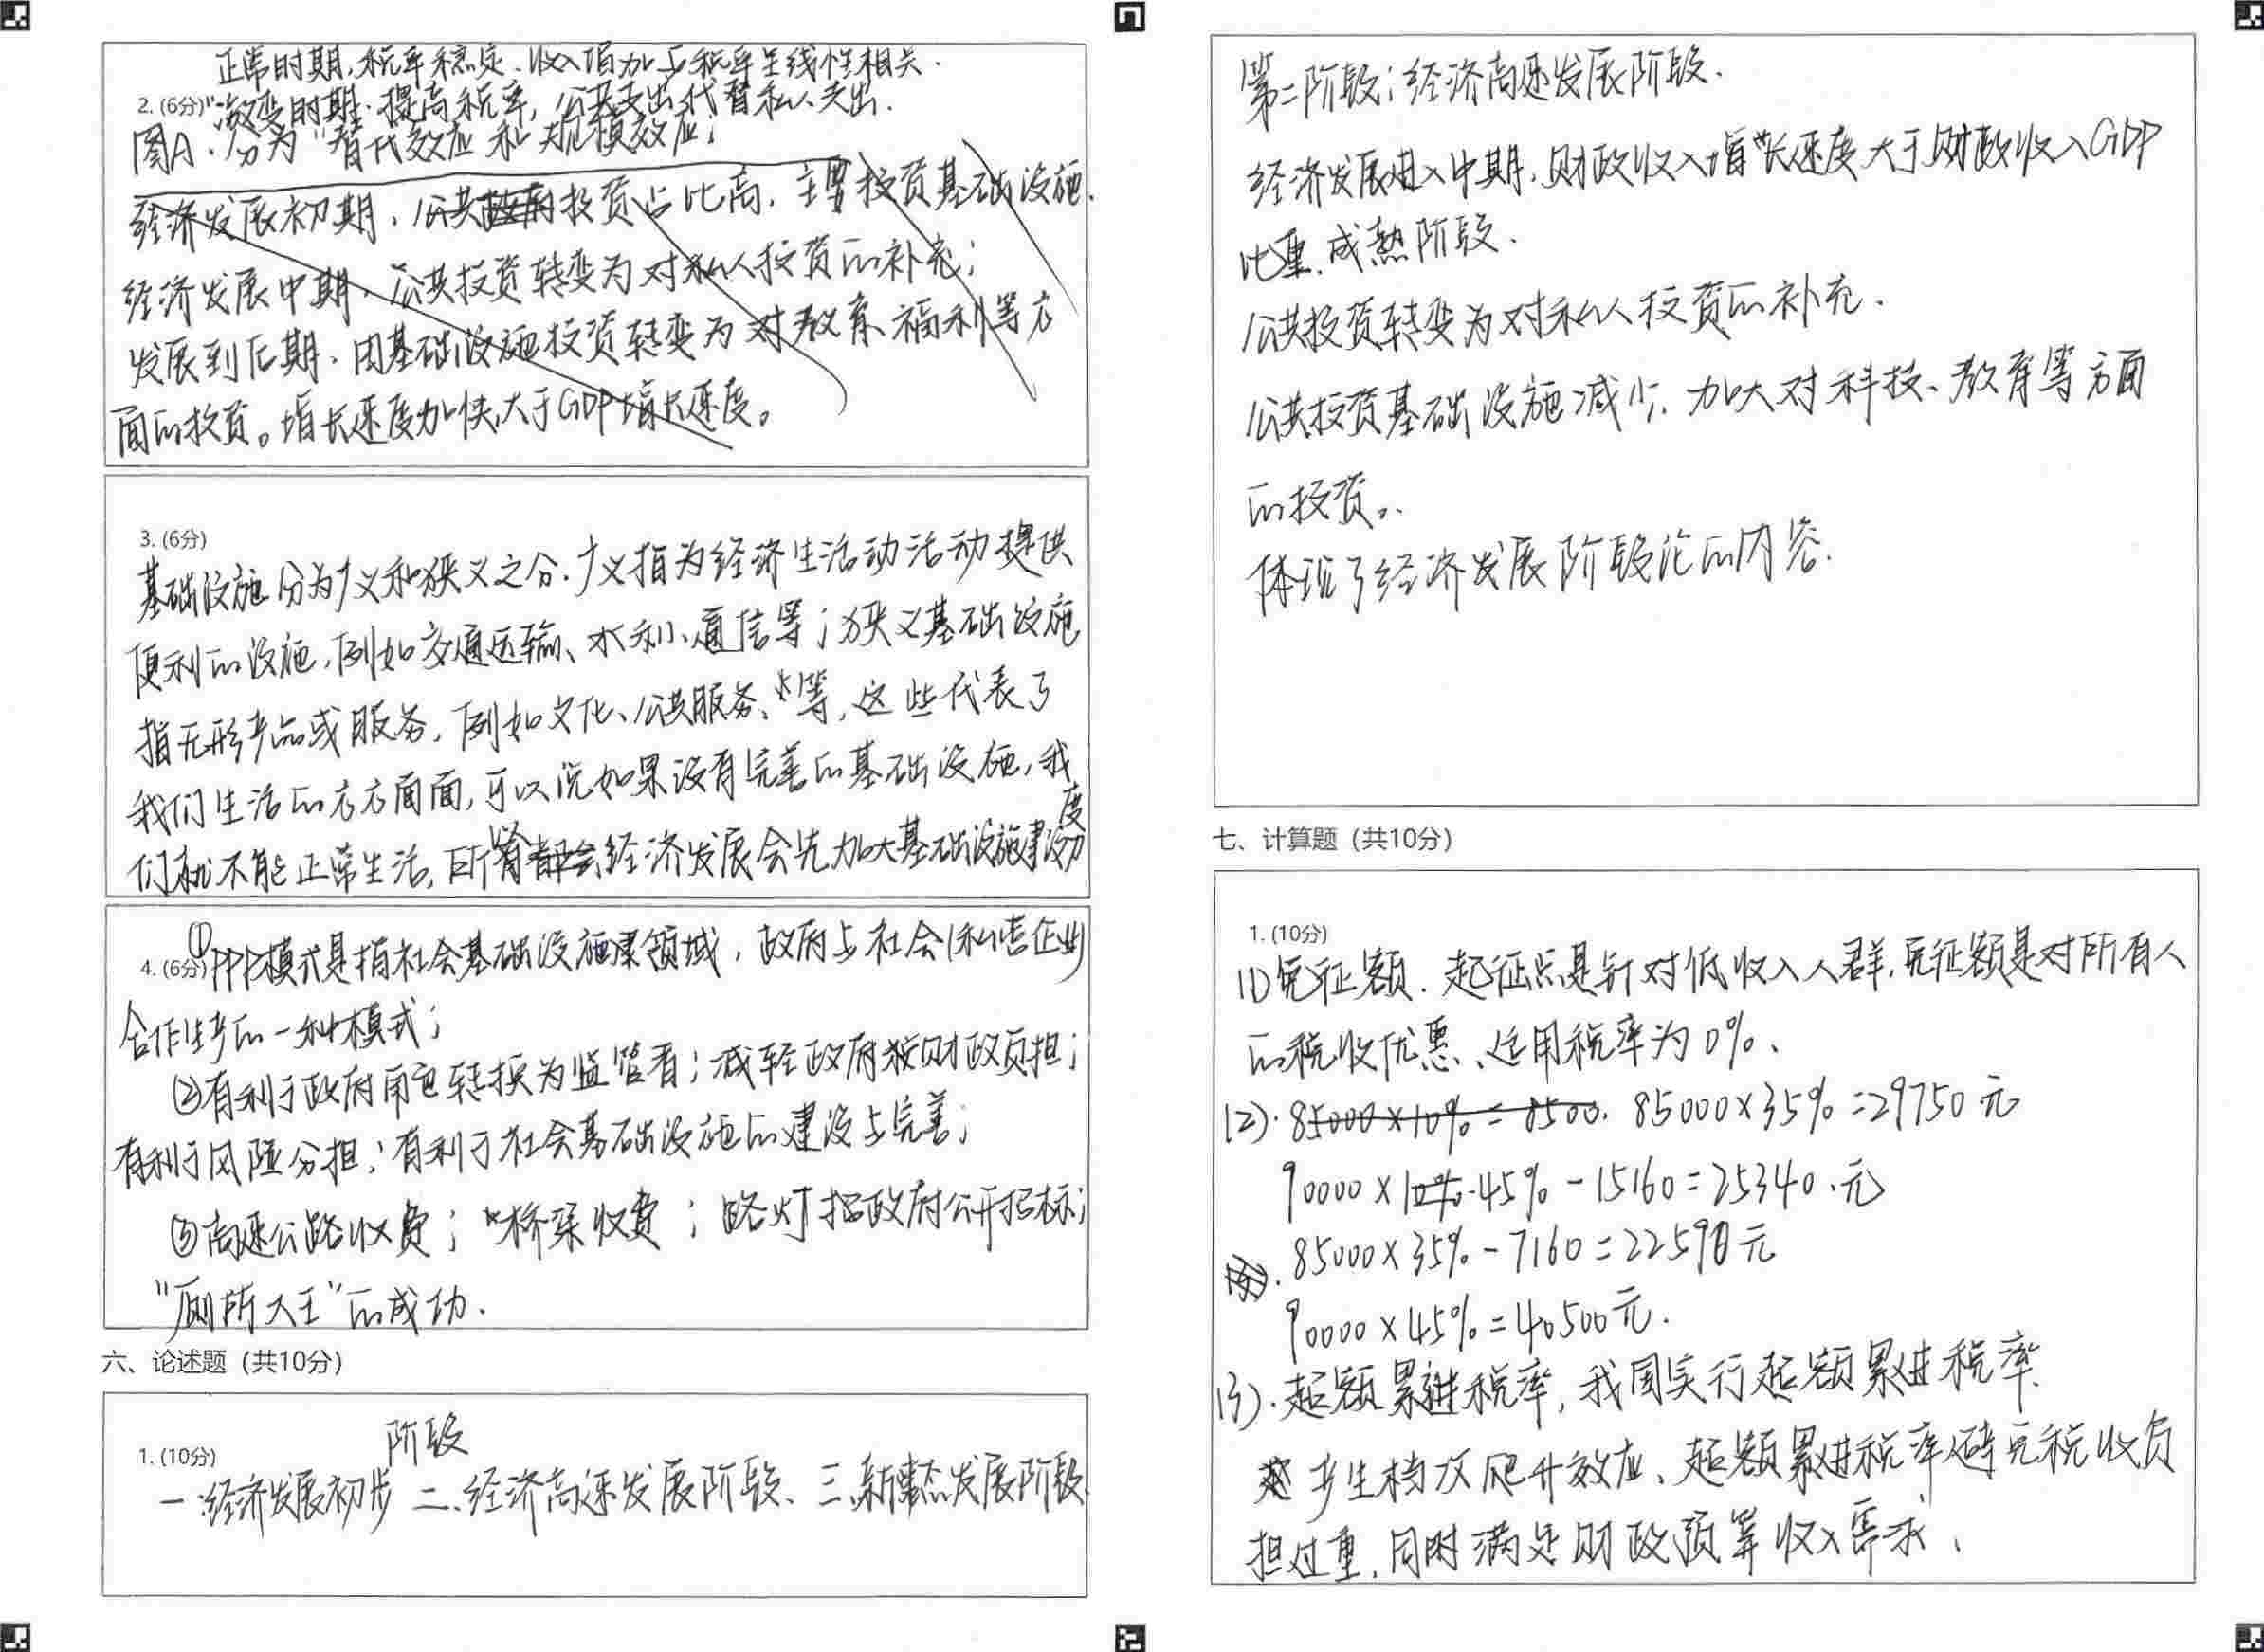 正常时期,税率稳定、收入增加与税率呈线性相关.
2. (6分)"激变时期"提高税率,公共支出代替私人支出.
图A、分为"替代效应和规模效应;
经济发展初期,公共投资占比高,主要投资基础设施.
经济发展中期,公共投资转变为对私人投资的补充;
发展到后期,由基础设施投资转变为对教育、福利等方
面的投资。增长速度加快,大于GDP增长速度。
3. (6分)
基础设施分为广义和狭义之分.广义指为经济生活动活动提供
便利的设施,例如交通运输、水利、通信等;狭义基础设施
指无形产品或服务,例如文化、公共服务、等,这些代表了
我们生活的方方面面,可以说如果没有完善的基础设施,我
们就不能正常生活,所以经济发展会先加大基础设施建设力度
4. (6分)①PPP模式是指社会基础设施领域,政府与社会(私营企业)
合作生产的一种模式;
②有利于政府角色转换为监管者;减轻政府财政负担;
有利于风险分担;有利于社会基础设施的建设与完善;
③高速公路收费;桥梁收费;路灯招政府公开招标;
"厕所大王"的成功.
六、论述题(共10分)
1. (10分)
一.经济发展初步阶段 二.经济高速发展阶段、三.新常态发展阶段.
第二阶段:经济高速发展阶段.
经济发展进入中期,财政收入增长速度大于财政收入GDP
比重.成熟阶段.
公共投资转变为对私人投资的补充.
公共投资基础设施减少,加大对科技、教育等方面
的投资。
体现了经济发展阶段论的内容.
七、计算题(共10分)
1. (10分)
(1)免征额.起征点是针对低收入人群,免征额是对所有人
的税收优惠、适用税率为0%、
(2). 85000×10%=8500. 85000×35%=29750元
90000×45%-15160=25340.元
85000×35%-7160=22590元
90000×45%=40500元.
(3).超额累进税率,我国实行超额累进税率.
产生档次爬升效应、超额累进税率避免税收负
担过重,同时满足财政预算收入需求、